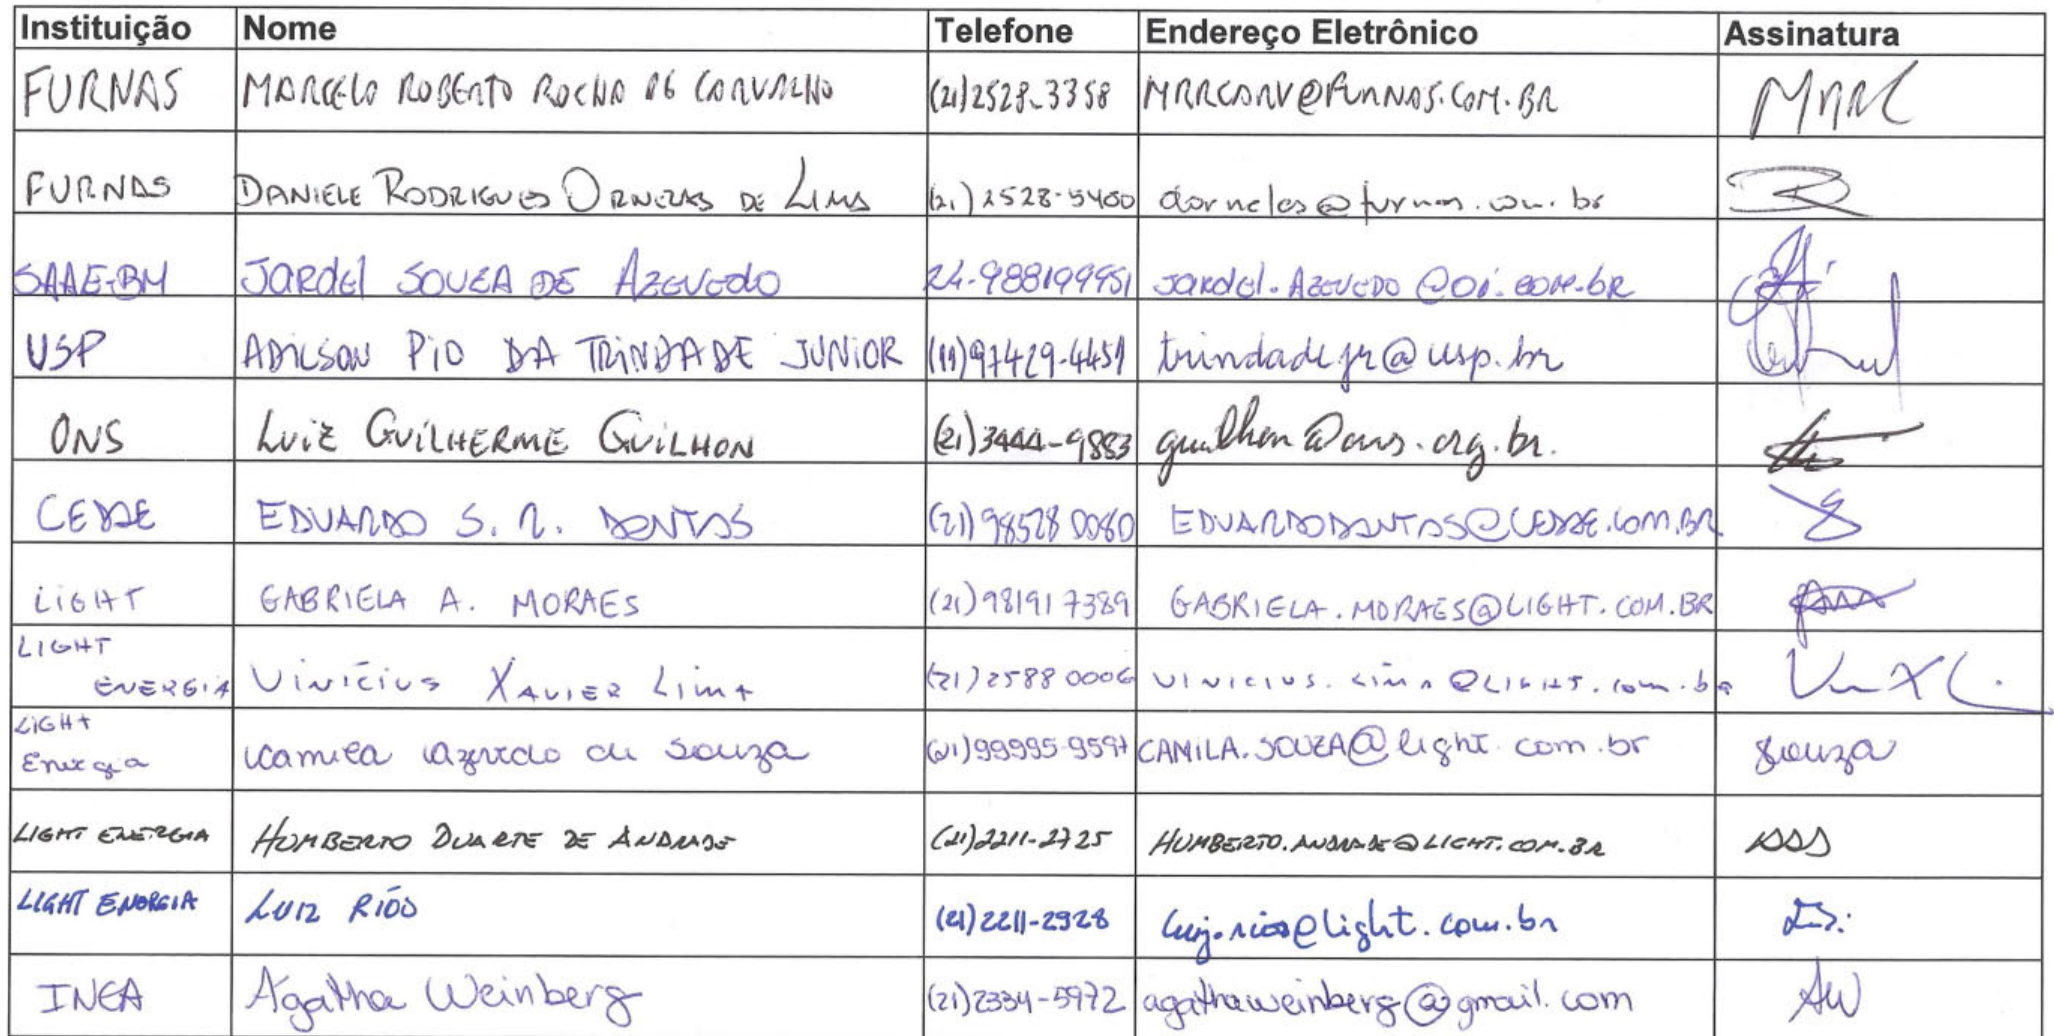 Instituição Nome Telefone Endereço Eletrônico Assinatura
FURNAS MARCELO ROBERTO ROCHA DE CARVALHO (21)2528-3358 MRRCARV@FURNAS.COM.BR MRRC
FURNAS DANIELE RODRIGUES ORNELAS DE LIMA (21)2528-5400 dornelas@furnas.com.br
SAAE-BM JARDEL SOUZA DE AZEVEDO 24-988199951 JARDEL.AZEVEDO@OI.COM.BR
USP ADILSON PIO DA TRINDADE JUNIOR (11)97429-4451 trindadejr@usp.br
ONS LUIZ GUILHERME GUILHON (21)3444-9883 guilhon@ons.org.br.
CEDAE EDUARDO S. R. DANTAS (21)98528 0080 EDUARDODANTAS@CEDAE.COM.BR
LIGHT GABRIELA A. MORAES (21)98191 7389 GABRIELA.MORAES@LIGHT.COM.BR
LIGHT
ENERGIA Vinícius XAVIER Lima (21)2588 0006 VINICIUS.LIMA@LIGHT.com.br
LIGHT
Energia Camila Azevedo de Souza (21)99995-9597 CAMILA.SOUZA@light.com.br Souza
LIGHT ENERGIA HUMBERTO DUARTE DE ANDRADE (21)2211-2725 HUMBERTO.ANDRADE@LIGHT.COM.BR
LIGHT ENERGIA LUIZ RIÓS (21)2211-2928 luiz.rios@light.com.br
INEA Ágatha Weinberg (21)2334-5972 agathaweinberg@gmail.com AW